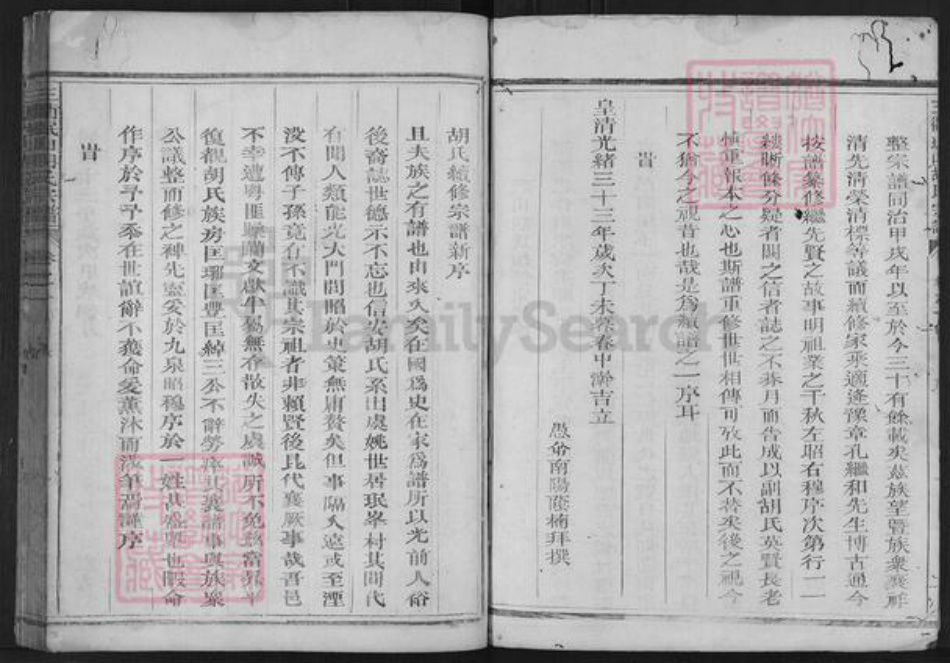 整宗譜同治甲戌年以至於今三十有餘載矣茲族望暨族眾襄
清先清榮清標等議而續修家乘適逢豫章孔繼和先生博古通今
按譜纂修繼先賢之故事明祖業之千秋左昭右穆序次第行一一
縷晰條分疑者闕之信者誌之不朞月而告成以副胡氏英賢長老
慎重報本之心也斯譜重修世世相傳可攷此而不替矣後之視今
不猶今之視昔也哉是為續譜之一序耳
旹
皇清光緒三十三年歲次丁未春中澣吉立
愚爺南陽蔭楠拜撰
胡氏續修宗譜新序
且夫族之有譜也由來久矣在國為史在家為譜所以光前人裕
後裔誌世德示不忘也信安胡氏系出虞姚世居珉峯村其間代
有聞人類能光大門閭昭於史策無庸贅矣但事隔久遠或至湮
没不傳子孫竟有不識其宗祖者非賴賢後昆代襄厥事哉吾邑
不幸遭粵匪躁躪文獻半屬無存散失之虞誠所不免茲富
復觀胡氏族房匡瑯匡豐匡綽三公不辭勞瘁共襄譜事與族眾
公議整而修之裨先靈妥於九泉昭穆序於一姓其盛舉也限命
作序於予予忝在世誼辭不獲命爰薰沐而汲筆焉謹序
旹
FamilySearch